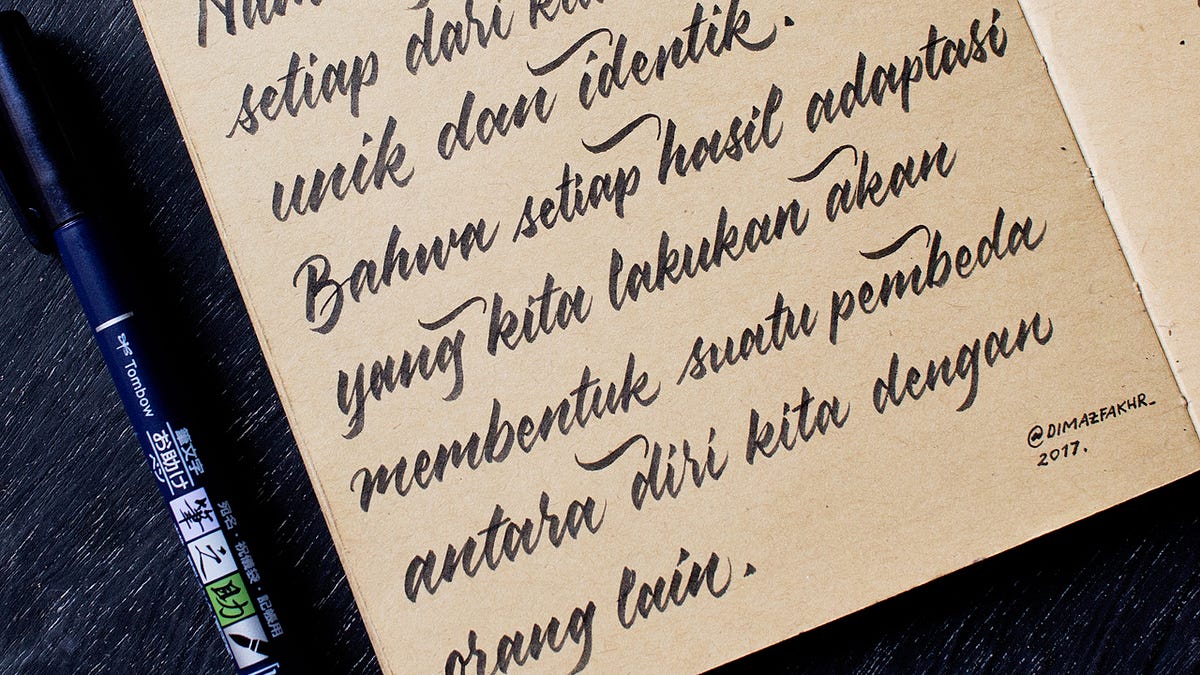 setiap dari
unik dan identik.
Bahwa setiap hasil adaptasi
yang kita lakukan akan
membentuk suatu pembeda
antara diri kita dengan
orang lain.
@DIMAZFAKHR_
2017.
Tombow
筆文字
お助け
ペン
筆之助
宛名・祝儀袋・記帳用